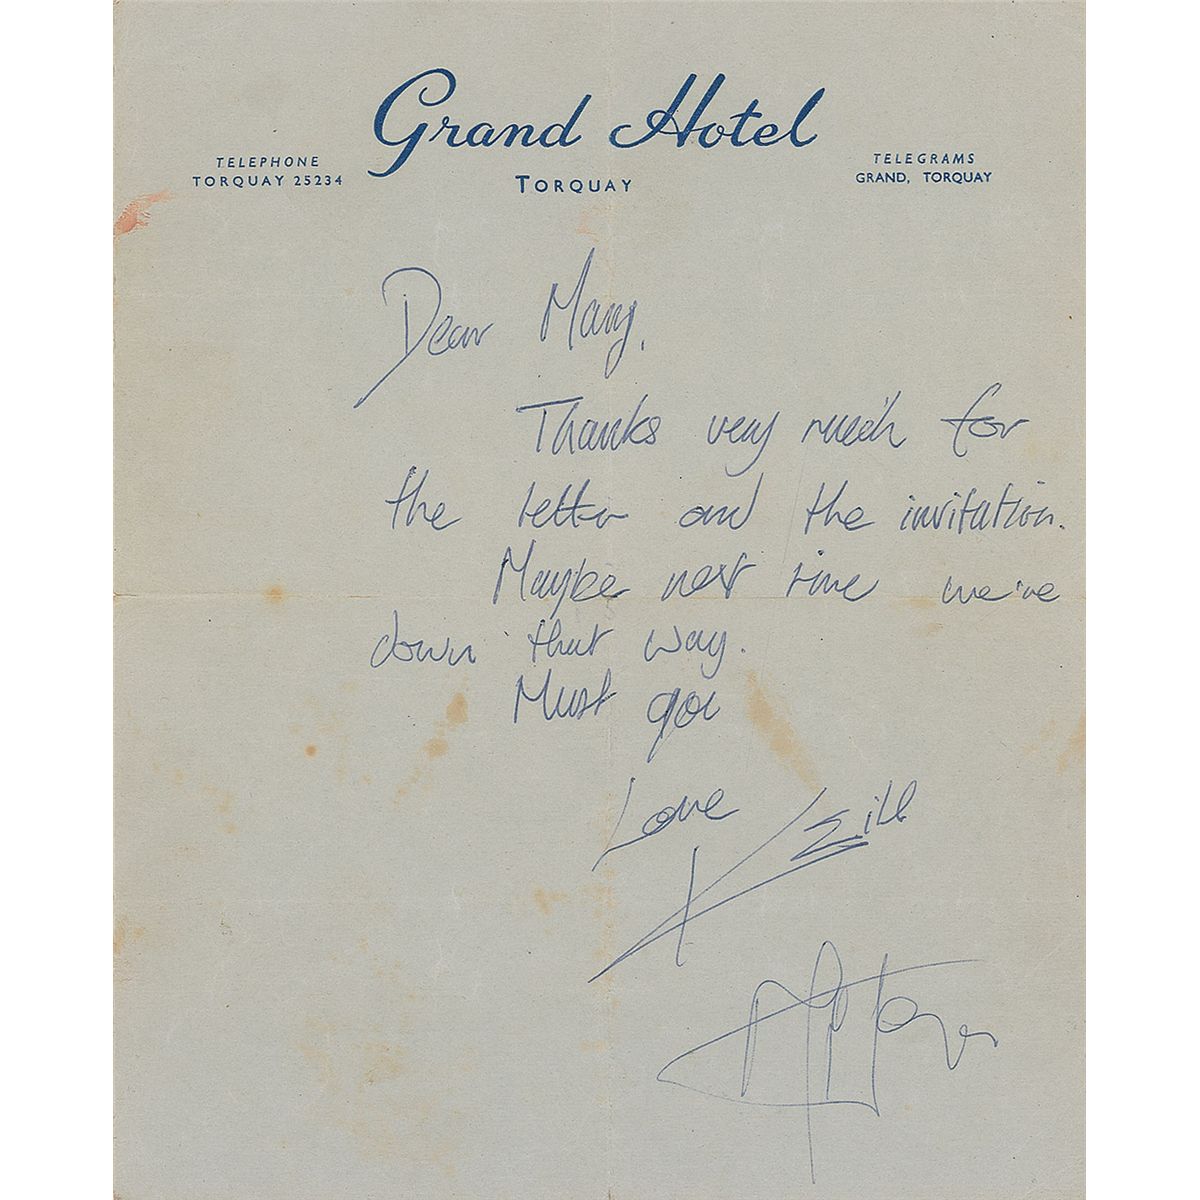 Grand Hotel
TELEPHONE
TORQUAY 25234
TORQUAY
TELEGRAMS
GRAND, TORQUAY
Dear Mary,
Thanks very much for
the letter and the invitation.
Maybe next time we're
down that way.
Must go
Love